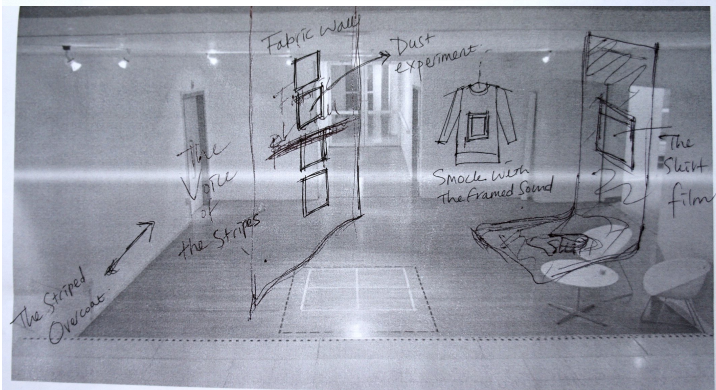 Fabric Wall
Dust
experiment.
The
Voice
of
the Stripes
Smock with
The Framed Sound
The
Skirt
film
The Striped
Overcoat